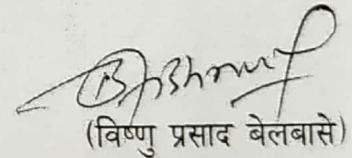 (विष्णु प्रसाद बेलबासे)